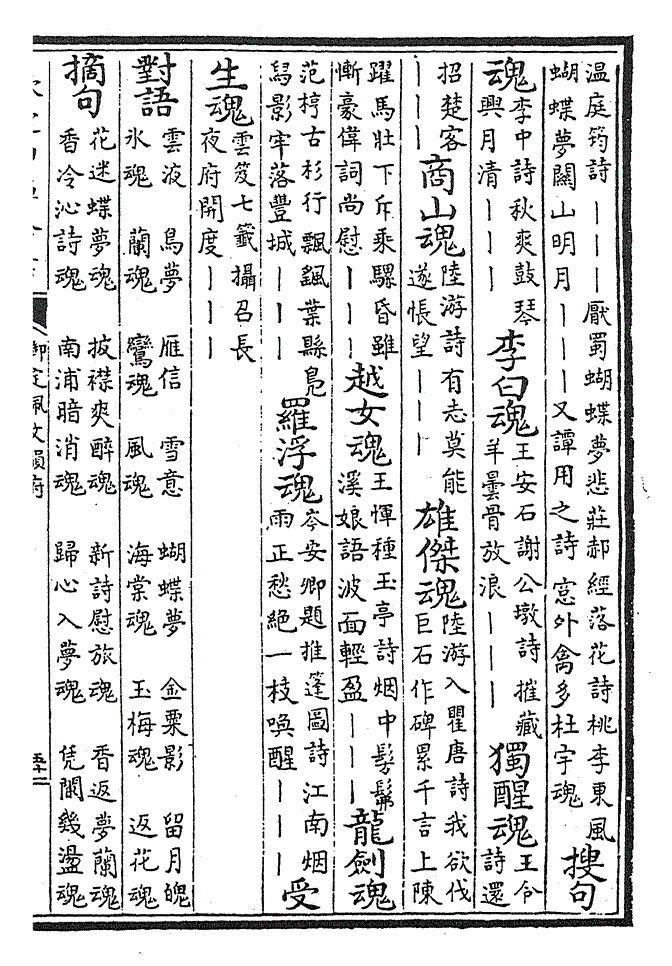 温庭筠詩丨丨丨厭蜀蝴蝶夢悲莊郝經落花詩桃李東風
蝴蝶夢關山明月丨丨丨又譚用之詩窓外禽多杜宇魂
搜句
魂
李中詩秋爽鼓琴
興月清丨丨丨
李白魂
王安石謝公墩詩摧藏
羊曇骨放浪丨丨丨
獨醒魂
王令
詩還
招楚客
丨丨丨
商山魂
陸游詩有志莫能
遂悵望丨丨丨
雄傑魂
陸游入瞿唐詩我欲伐
巨石作碑累千言上陳
躍馬壮下斥乘騾昏雖
慚豪偉詞尚慰丨丨丨
越女魂
王惲種玉亭詩烟中髣髴
溪娘語波面輕盈丨丨丨
龍劍魂
范梈古杉行飄飖葉縣鳧
舄影牢落豐城丨丨丨
羅浮魂
岑安卿題推篷圖詩江南烟
雨正愁絶一枝喚醒丨丨丨
受
生魂
雲笈七籤攝召長
夜府開度丨丨丨
對語
雲液 鳥夢 雁信 雪意 蝴蝶夢 金粟影 留月魄
氷魂 蘭魂 鸞魂 風魂 海棠魂 玉梅魂 返花魂
摘句
花迷蝶夢魂 披襟爽醉魂 新詩慰旅魂 香返夢蘭魂
香冷沁詩魂 南浦暗消魂 歸心入夢魂 凭闌幾盪魂
御定佩文韻府